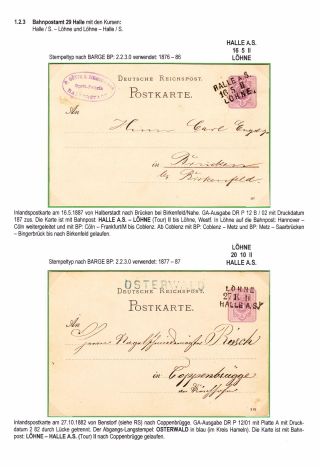 1.2.3 Bahnpostamt 29 Halle mit den Kursen:
Halle / S. – Löhne und Löhne – Halle / S.
HALLE A.S.
16 5 II
LÖHNE
Stempeltyp nach BARGE BP: 2.2.3.0 verwendet: 1876 – 86
DEUTSCHE REICHSPOST.
POSTKARTE.
HALLE A.S.
16 5 II
LÖHNE
HALBERSTADT
An
Herrn Carl
in Brücken
bei Birkenfeld.
Inlandspostkarte am 16.5.1887 von Halberstadt nach Brücken bei Birkenfeld/Nahe. GA-Ausgabe DR P 12 B / 02 mit Druckdatum
187 zos. Die Karte ist mit Bahnpost: HALLE A.S. – LÖHNE (Tour) II bis Löhne, Westf. In Löhne auf die Bahnpost: Hannover –
Cöln weitergeleitet und mit BP: Cöln – Frankfurt/M bis Coblenz. Ab Coblenz mit BP: Coblenz – Metz und BP: Metz – Saarbrücken
– Bingerbrück bis nach Birkenfeld gelaufen.
LÖHNE
20 10 II
HALLE A.S.
Stempeltyp nach BARGE BP: 2.2.3.0 verwendet: 1877 – 87
OSTERWALD
DEUTSCHE REICHSPOST.
POSTKARTE.
LÖHNE
27 10 II
HALLE A.S.
An
Herrn Nagelschmiedemeister Rösch
in Coppenbrügge
Inlandspostkarte am 27.10.1882 von Benstorf (siehe RS) nach Coppenbrügge. GA-Ausgabe DR P 12/01 mit Platte A mit Druck-
datum 2 82 durch Lücke getrennt. Der Abgangs-Langstempel: OSTERWALD in blau (im Kreis Hameln). Die Karte ist mit Bahn-
post: LÖHNE – HALLE A.S. (Tour) II nach Coppenbrügge gelaufen.